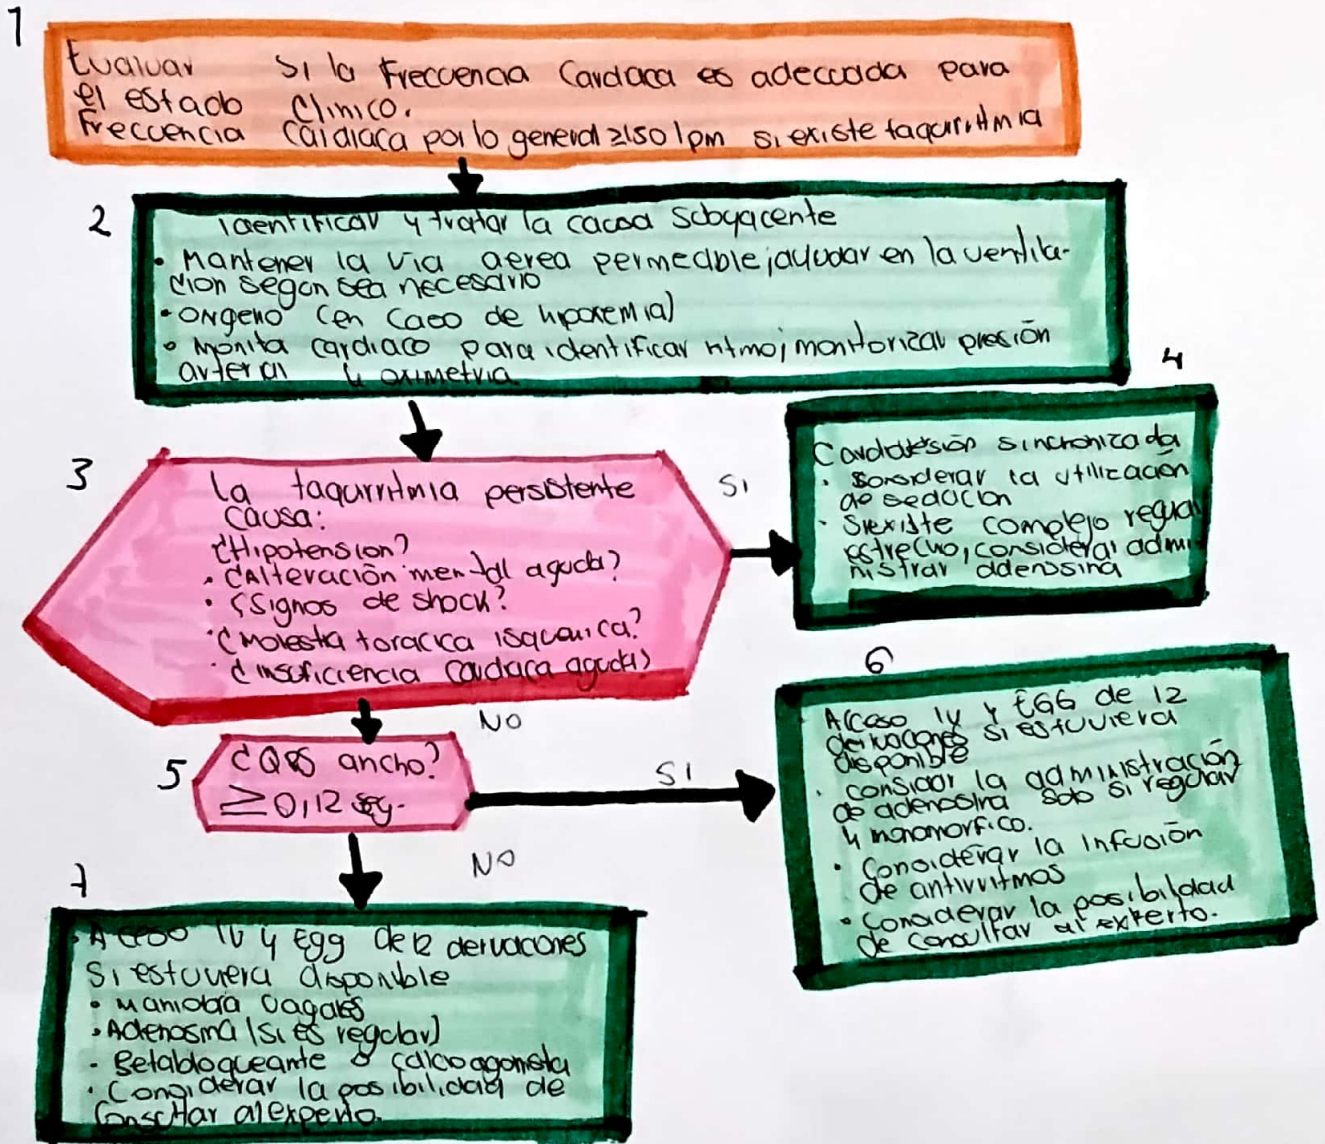 1
Evaluar si la Frecuencia Cardaca es adecuada para
el estado Clinico.
Frecuencia Cardiaca por lo general ≥150 lpm si existe taquirritmia
2
Identificar y tratar la causa Subyacente
• Mantener la via aerea permeable; ayudar en la ventila-
cion segun sea necesario
• oxigeno (en caso de hipoxemia)
• Monita cardiaco para identificar ritmo; monitorizar presión
arterial y oximetria
3
La taquirritmia persistente
Causa:
¿Hipotension?
• ¿Alteración mental aguda?
• ¿Signos de shock?
• ¿Molestia toracica isquemica?
• ¿insuficiencia cardaca aguda?
SI
4
Cardiovesión sincronizada
• Considerar la utilización
de sedacion
• Si existe complejo regular
estrecho, considerar admi-
nistrar adenosina
NO
5
¿QRS ancho?
≥0,12 seg.
SI
6
Acceso IV y EGG de 12
derivaciones si estuviera
disponible
• considar la administración
de adenosina solo si regular
y monomorfico.
• Considerar la infusión
de antirritmos
• Considerar la posibilidad
de consultar al experto.
NO
7
• Acceso IV y Egg de 12 dervaciones
Si estuviera disponible
• Maniobra Vagales
• Adenosina (si es regular)
• Betabloqueante o calcioagonista
• Considerar la posibilidad de
Consultar al experto.